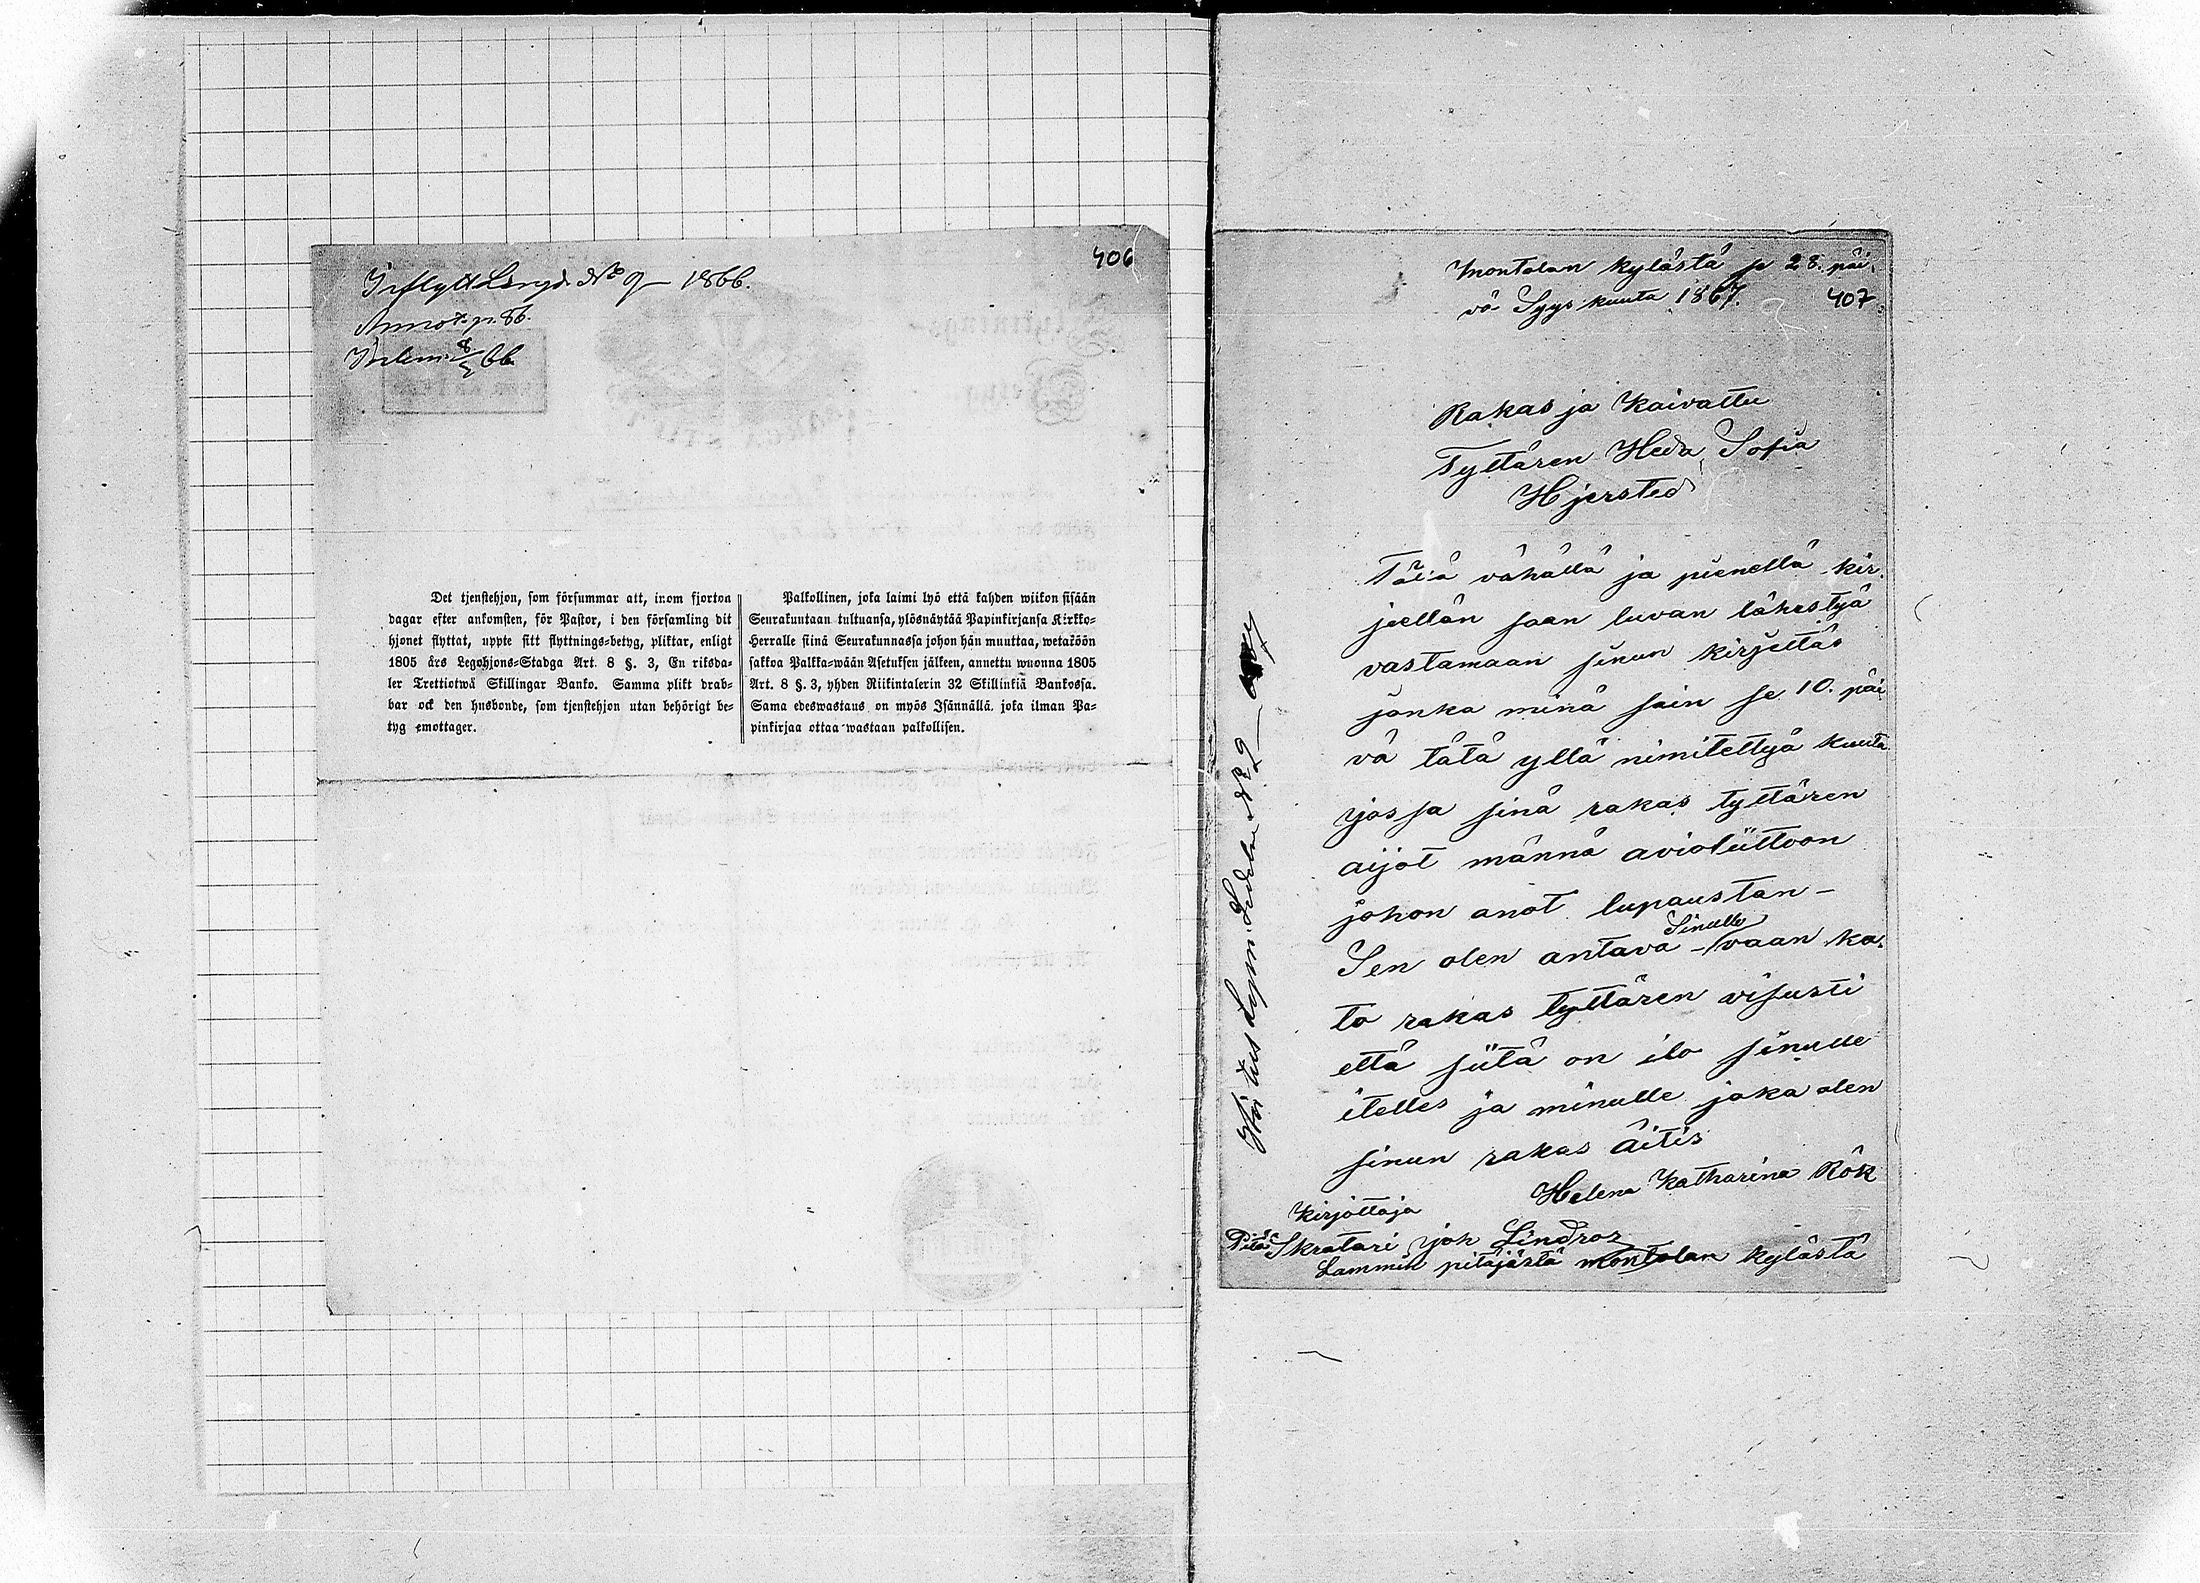 406
Inflytt Längd. No 9 – 1866.
Annot. p. 86.
Inlem. 8/5 66.
Det tjenstehjon, som försummar att, inom fjorton
dagar efter ankomsten, för Pastor, i den församling dit
hjonet flyttat, uppte sitt flyttnings-betyg, pliktar, enligt
1805 års Legohjons-Stadga Art. 8 §. 3, En riksda-
ler Trettiotwå Skillingar Banko. Samma plikt drab-
bar ock den husbonde, som tjenstehjon utan behörigt be-
tyg emottager.
Palkollinen, joka laimi lyö että kahden wiikon sisään
Seurakuntaan tultuansa, ylösnäytää Papinkirjansa Kirkko-
Herralle siinä Seurakunnassa johon hän muuttaa, wetäköön
sakkoa Palkka-wään Asetuksen jälkeen, annettu wuonna 1805
Art. 8 §. 3, yhden Riikintalerin 32 Skillinkiä Bankossa.
Sama edeswastaus on myös Isännällä. joka ilman Pa-
pinkirjaa ottaa wastaan palkollisen.
Montolan kylästä se 28. päi-
vä Syys kuuta 1867.
407
Rakas ja Kaivattu
Tyttären Heda Sofia
Hjersted
Tällä vähällä ja pienellä kir-
jellän saan luvan lähestyä
vastamaan sinun kirjeltäs
jonka minä sain se 10. päi
vä tätä yllä nimitettyä kuuta
jossa sinä rakas tyttären
aijot männä avioliittoon
johon anot lupaustan –
Sen olen antava – Sinulle vaan ka-
to rakas tyttären visusti
että siitä on ilo sinulle
itelles ja minulle joka olen
sinun rakas äitis
Helena Katharina Rök
Kirjottaja
Pitä: Skratari joh Lindros
Lammin pitäjästä montolan kylästä
No 9